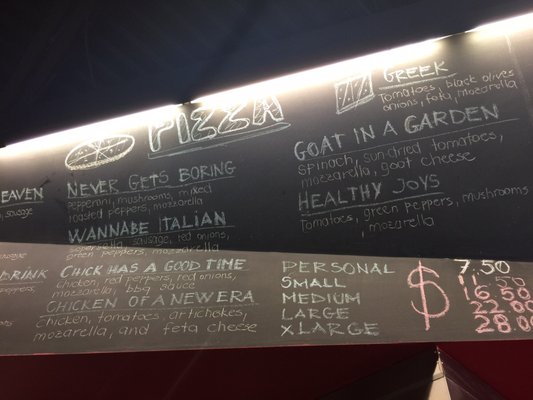 PIZZA
EAVEN
, sausage
NEVER GETS BORING
pepperoni, mushrooms, mixed
roasted peppers, mozzarella
WANNABE ITALIAN
sausage, red onions,
green peppers, mozzarella
DRINK
peppers,
CHICK HAS A GOOD TIME
chicken, red peppers, red onions,
mozzarella, bbq sauce
CHICKEN OF A NEW ERA
chicken, tomatoes, artichokes,
mozarella, and feta cheese
GREEK
Tomatoes, black olives
onions, feta, mozarella
GOAT IN A GARDEN
spinach, sundried tomatoes,
mozzarella, goat cheese
HEALTHY JOYS
Tomatoes, green peppers, mushrooms
mozarella
PERSONAL $ 7.50
SMALL 11.50
MEDIUM 16.50
LARGE 22.00
X LARGE 28.00